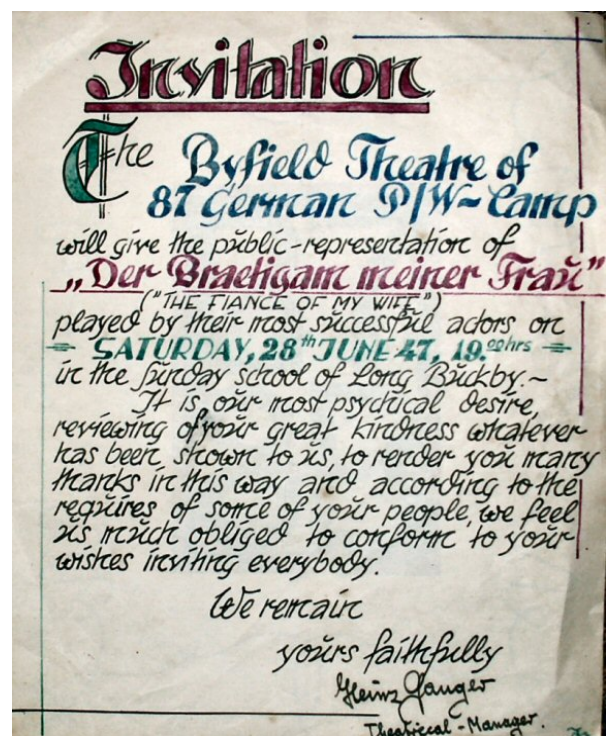 Invitation
The Byfield Theatre of
87 German P/W-Camp
will give the public-representation of
„Der Braetigam meiner Fraŭ"
("THE FIANCE OF MY WIFE")
played by their most sŭccessfŭl actors on
= SATURDAY, 28th JUNE 47, 19.00hrs =
in the sŭnday school of Long Bŭckby.~
It is oŭr most psychical desire,
reviewing of yoŭr great kindness whatever
has been shown to ŭs, to render yoŭ many
thanks in this way and according to the
reqŭires of some of yoŭr people, we feel
ŭs mŭch obliged to conform to yoŭr
wishes inviting everybody.
We remain
yoŭrs faithfŭlly
Heinz Ganger
Theatrecal-Manager.